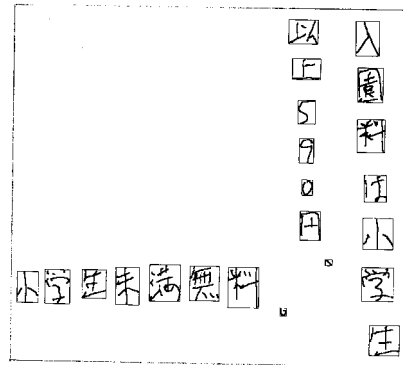 入園料は小学生
以上590円、
小学生未満無料。